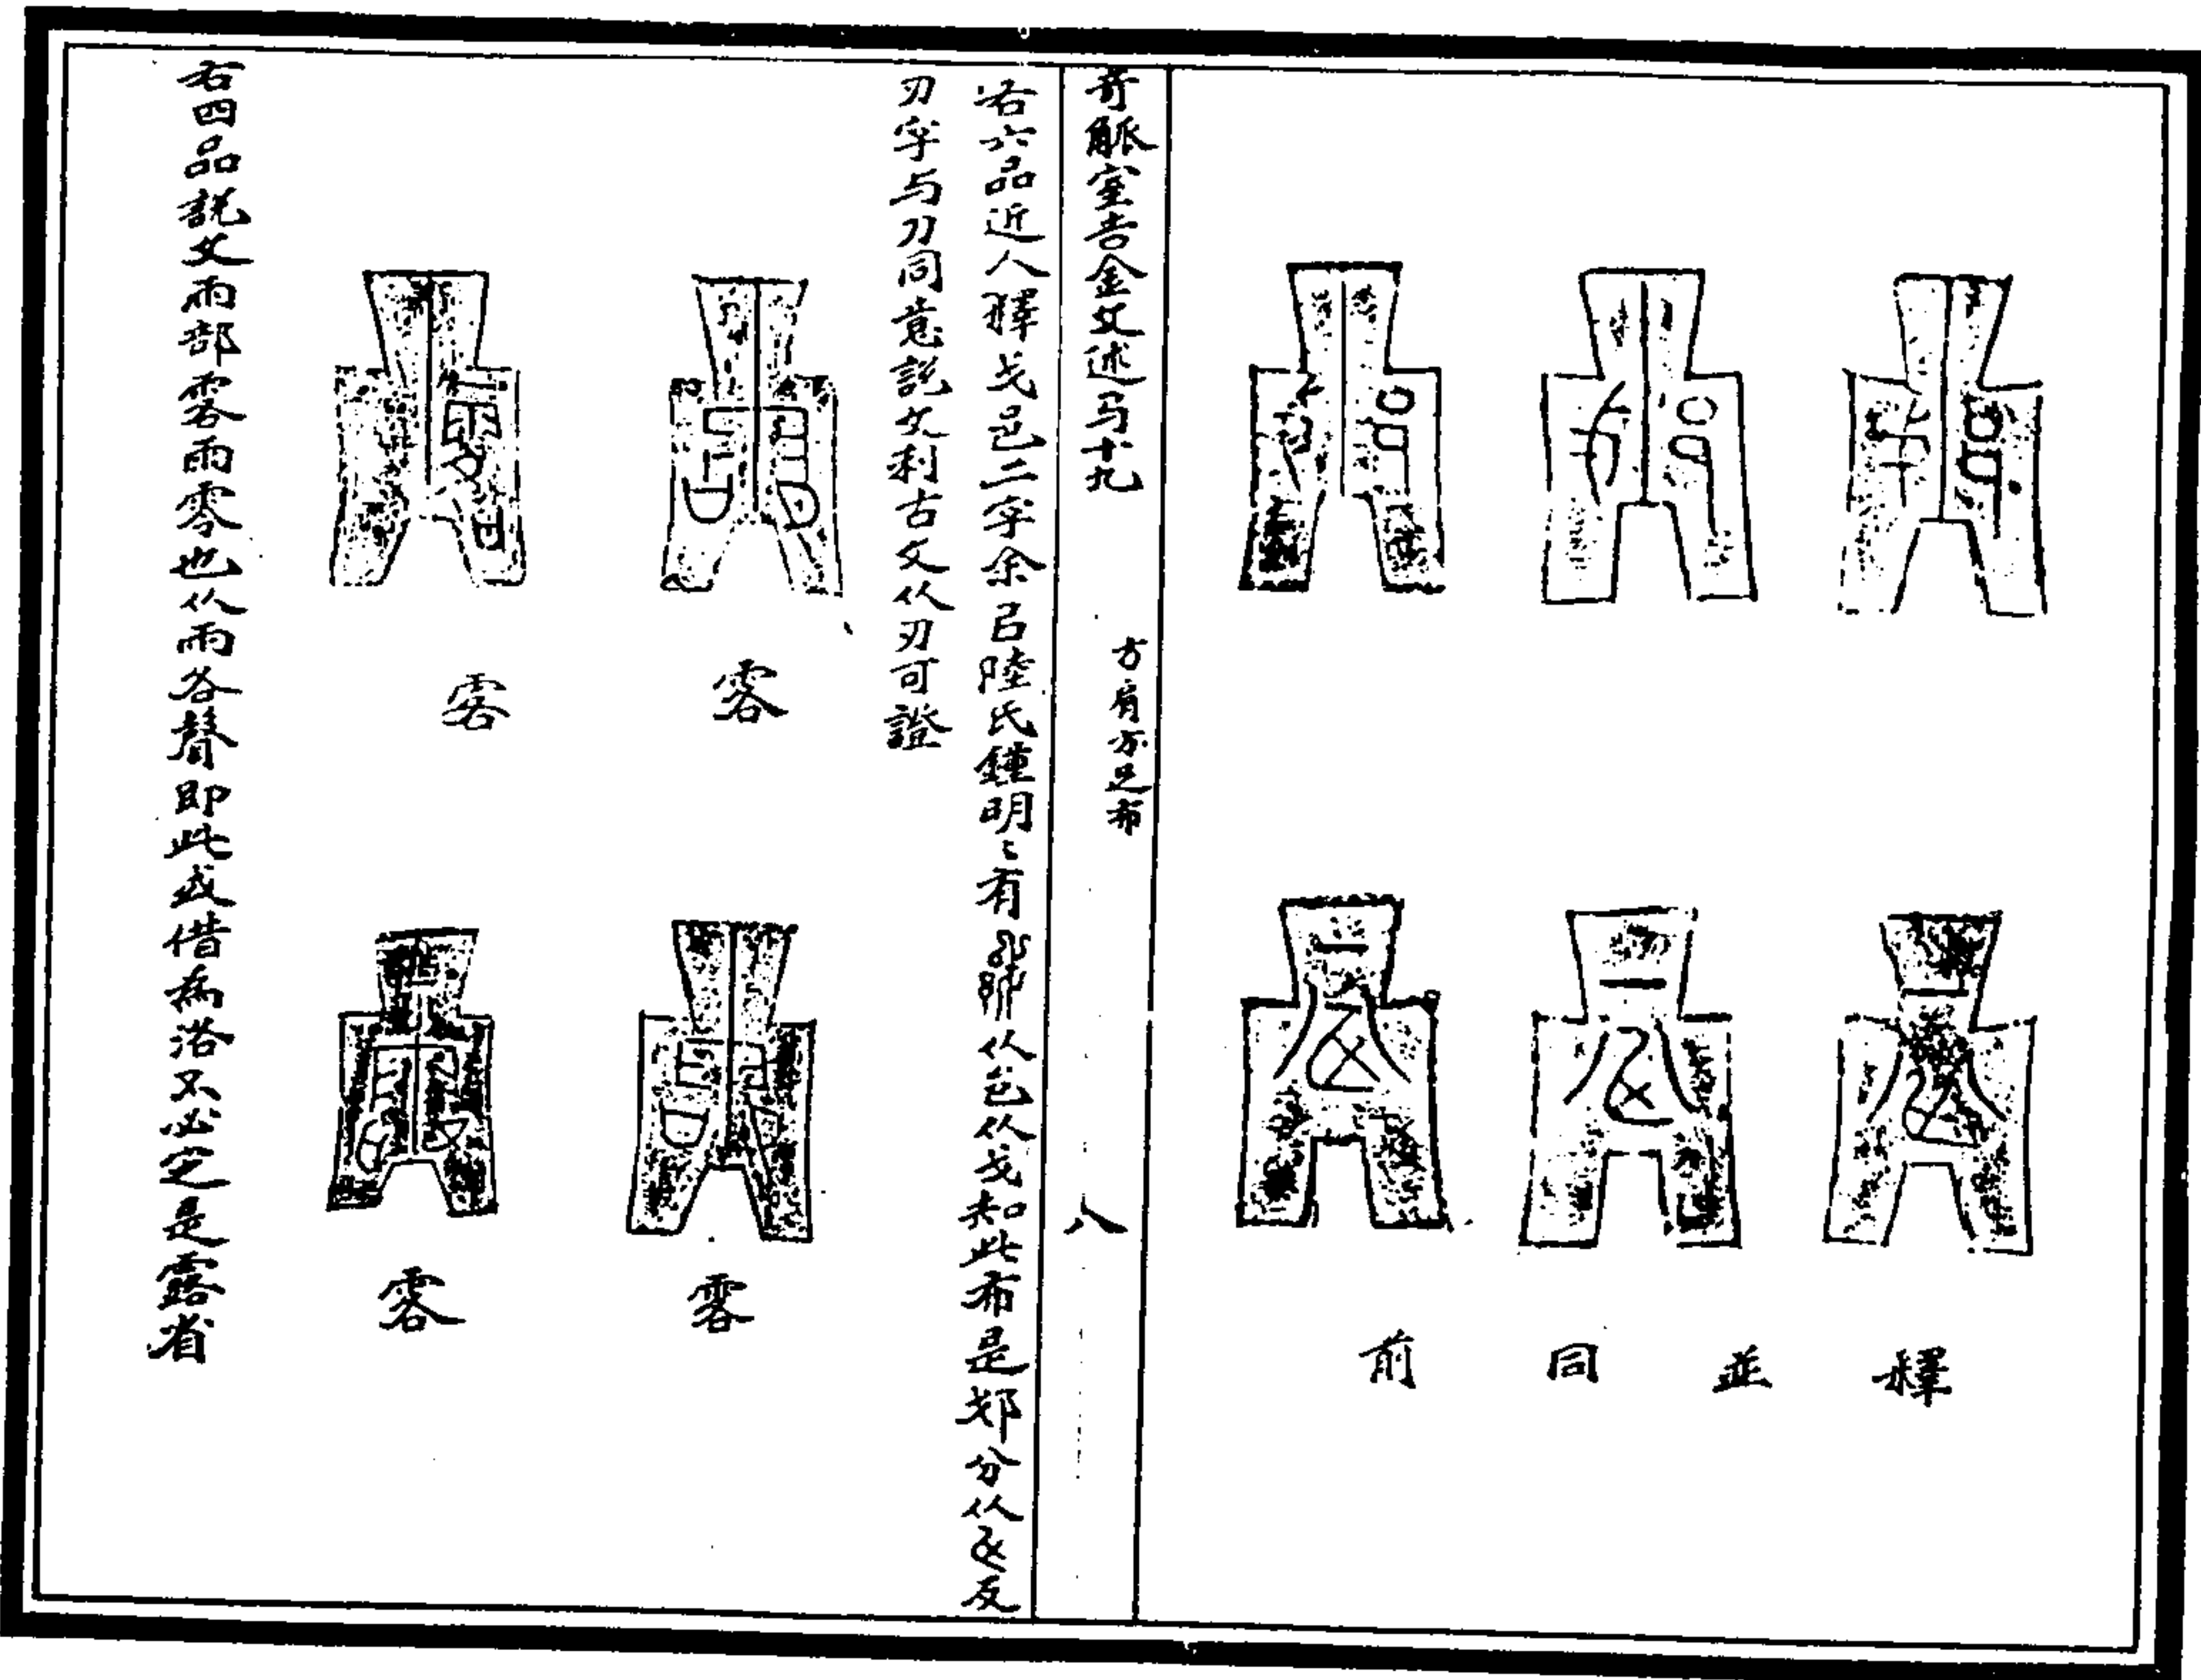 釋並同前
奇觚室吉金文述弓十九
方肩方足布
八
右六品近人釋戈邑二字余㠯陸氏鐘明〻有从邑从戈知此布是𨙵分从反
刃字与刀同意説文利古文从刃可證
雺
雺
零
零
右四品説文雨部零雨零也从雨各聲即此或借為洛不必定是露省